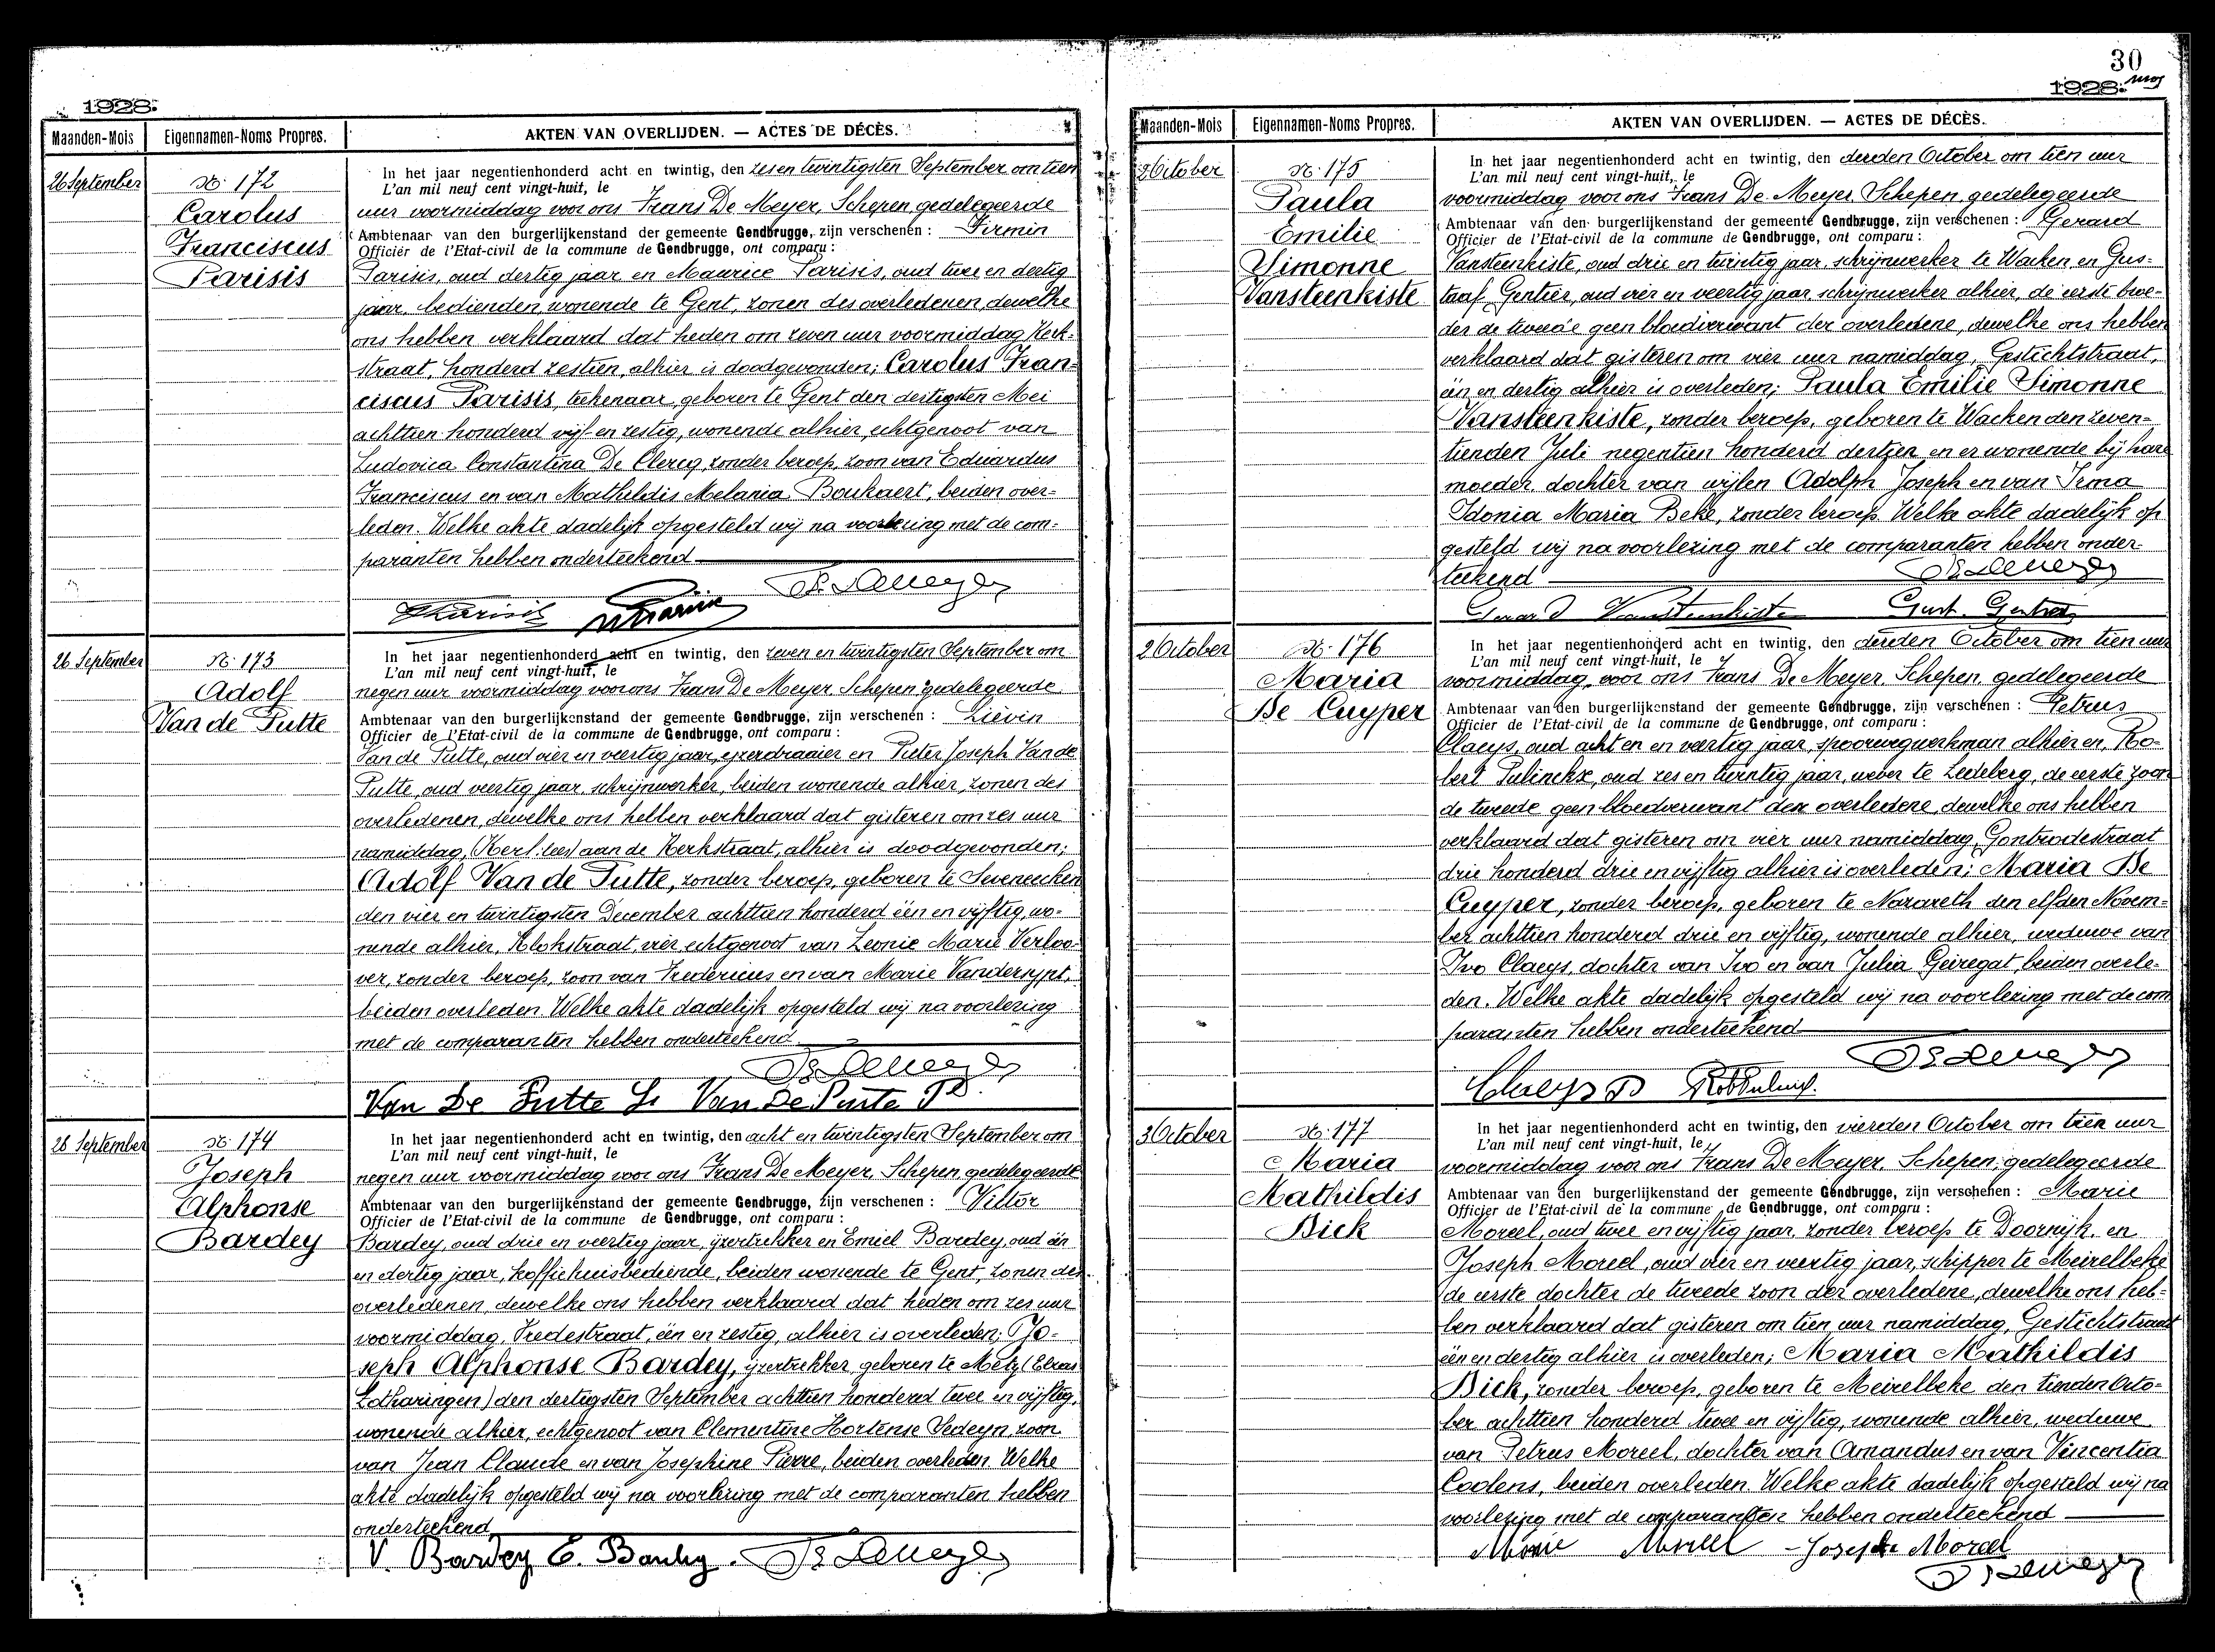 1928.
Maanden-Mois
Eigennamen-Noms Propres.
AKTEN VAN OVERLIJDEN. — ACTES DE DÉCÈS.
26 September
N: 172
Carolus
Franciscus
Parisis
In het jaar negentienhonderd acht en twintig, den zes en twintigsten September om tien
L'an mil neuf cent vingt-huit, le
uur voormiddag voor ons Frans De Meyer, Schepen gedelegeerde
Ambtenaar van den burgerlijkenstand der gemeente Gendbrugge, zijn verschenen : Firmin
Officier de l'Etat-civil de la commune de Gendbrugge, ont comparu :
Parisis, oud dertig jaar en Maurice Parisis, oud twee en dertig
jaar, bedienden, wonende te Gent, zonen des overledenen, dewelke
ons hebben verklaard dat heden om zeven uur voormiddag, Kerk-
straat, honderd zestien, alhier is doodgevonden; Carolus Fran-
ciscus Parisis, teekenaar, geboren te Gent den dertigsten Mei
achttien honderd vijf en zestig, wonende alhier, echtgenoot van
Ludovica Constantina De Clercq, zonder beroep, zoon van Eduardus
Franciscus en van Mathildis Melania Boukaert, beiden over-
leden. Welke akte dadelijk opgesteld wij na voorlezing met de com-
paranten hebben onderteekend
26 September
N: 173
Adolf
Van de Putte
In het jaar negentienhonderd acht en twintig, den zeven en twintigsten September om
L'an mil neuf cent vingt-huit, le
negen uur voormiddag voor ons Frans De Meyer, Schepen gedelegeerde
Ambtenaar van den burgerlijkenstand der gemeente Gendbrugge, zijn verschenen : Liévin
Officier de l'Etat-civil de la commune de Gendbrugge, ont comparu :
Van de Putte, oud vier en veertig jaar, yzerdraaier en Pieter Joseph Van de
Putte, oud veertig jaar, schrijnwerker, beiden wonende alhier, zonen des
overledenen, dewelke ons hebben verklaard dat gisteren om zes uur
namiddag, aan de Kerkstraat, alhier is doodgevonden;
Adolf Van de Putte, zonder beroep, geboren te Seveneecken
den vier en twintigsten December achttien honderd één en vijftig, wo-
nende alhier, Klokstraat, vier, echtgenoot van Leonie Marie Verloo-
ver, zonder beroep, zoon van Fredericus en van Marie Vandersypt,
beiden overleden. Welke akte dadelijk opgesteld wij na voorlezing
met de comparanten hebben onderteekend
Van De Putte L. Van De Putte P
28 September
N: 174
Joseph
Alphonse
Bardey
In het jaar negentienhonderd acht en twintig, den acht en twintigsten September om
L'an mil neuf cent vingt-huit, le
negen uur voormiddag voor ons Frans De Meyer, Schepen gedelegeerde
Ambtenaar van den burgerlijkenstand der gemeente Gendbrugge, zijn verschenen : Viktor
Officier de l'Etat-civil de la commune de Gendbrugge, ont comparu :
Bardey, oud drie en veertig jaar, ijzertrekker en Emiel Bardey, oud één
en dertig jaar, koffiehuisbediende, beiden wonende te Gent, zonen des
overledenen, dewelke ons hebben verklaard dat heden om zes uur
voormiddag, Vredestraat, één en zestig, alhier is overleden; Jo-
seph Alphonse Bardey, ijzertrekker, geboren te Metz (Elzas
Lotharingen) den dertigsten September achttien honderd twee en vijftig,
wonende alhier, echtgenoot van Clementine Hortense Sedeyn, zoon
van Jean Claude en van Josephine Pierre, beiden overleden. Welke
akte dadelijk opgesteld wij na voorlezing met de comparanten hebben
onderteekend
V. Bardey E. Bardey
30
1928.
Maanden-Mois
Eigennamen-Noms Propres.
AKTEN VAN OVERLIJDEN. — ACTES DE DÉCÈS.
2 October
N: 175
Paula
Emilie
Simonne
Vansteenkiste
In het jaar negentienhonderd acht en twintig, den derden October om tien uur
L'an mil neuf cent vingt-huit, le
voormiddag voor ons Frans De Meyer, Schepen gedelegeerde
Ambtenaar van den burgerlijkenstand der gemeente Gendbrugge, zijn verschenen : Gerard
Officier de l'Etat-civil de la commune de Gendbrugge, ont comparu :
Vansteenkiste, oud drie en twintig jaar, schrijnwerker te Wacken en Gus-
taaf Gentier, oud vier en veertig jaar, schrijnwerker alhier, de eerste broe-
der de tweede geen bloedverwant der overledene, dewelke ons hebben
verklaard dat gisteren om vier uur namiddag, Gestichtstraat,
één en dertig alhier is overleden; Paula Emilie Simonne
Vansteenkiste, zonder beroep, geboren te Wacken den zeven-
tienden Juli negentien honderd dertien en er wonende bij hare
moeder, dochter van wijlen Adolph Joseph en van Irma
Idonia Maria Beke, zonder beroep. Welke akte dadelijk op
gesteld wij na voorlezing met de comparanten hebben onder-
teekend
Gerard Vansteenkiste Gust. Gentier
2 October
N: 176
Maria
De Cuyper
In het jaar negentienhonderd acht en twintig, den derden October om tien uur
L'an mil neuf cent vingt-huit, le
voormiddag, voor ons Frans De Meyer, Schepen gedelegeerde
Ambtenaar van den burgerlijkenstand der gemeente Gendbrugge, zijn verschenen : Petrus
Officier de l'Etat-civil de la commune de Gendbrugge, ont comparu :
Claeys, oud acht en en veertig jaar, spoorwegwerkman alhier en, Ro-
bert Pulinckx, oud zes en twintig jaar, wever te Ledeberg, de eerste zoon
de tweede geen bloedverwant der overledene, dewelke ons hebben
verklaard dat gisteren om vier uur namiddag, Gontrodestraat
drie honderd drie en vijftig alhier is overleden; Maria De
Cuyper, zonder beroep, geboren te Nazareth den elfden Novem-
ber achttien honderd drie en vijftig, wonende alhier, weduwe van
Ivo Claeys, dochter van Ivo en van Julia Geiregat, beiden overle-
den. Welke akte dadelijk opgesteld wij na voorlezing met de com
paranten hebben onderteekend
Claeys P
3 October
N: 177
Maria
Mathildis
Bick
In het jaar negentienhonderd acht en twintig, den vierden October om tien uur
L'an mil neuf cent vingt-huit, le
voormiddag voor ons Frans De Meyer, Schepen, gedelegeerde
Ambtenaar van den burgerlijkenstand der gemeente Gendbrugge, zijn verschenen : Marie
Officier de l'Etat-civil de la commune de Gendbrugge, ont comparu :
Moreel, oud twee en vijftig jaar, zonder beroep te Doornijk, en
Joseph Moreel, oud vier en veertig jaar, schipper te Meirelbeke
de eerste dochter de tweede zoon der overledene, dewelke ons heb-
ben verklaard dat gisteren om tien uur namiddag, Gestichtstraat
één en dertig alhier is overleden; Maria Mathildis
Bick, zonder beroep, geboren te Meirelbeke den tienden Octo-
ber achttien honderd twee en vijftig, wonende alhier, weduwe
van Petrus Moreel, dochter van Amandus en van Vincentia
Coolens, beiden overleden. Welke akte dadelijk opgesteld wij na
voorlezing met de comparanten hebben onderteekend
Marie Moreel Joseph Moreel